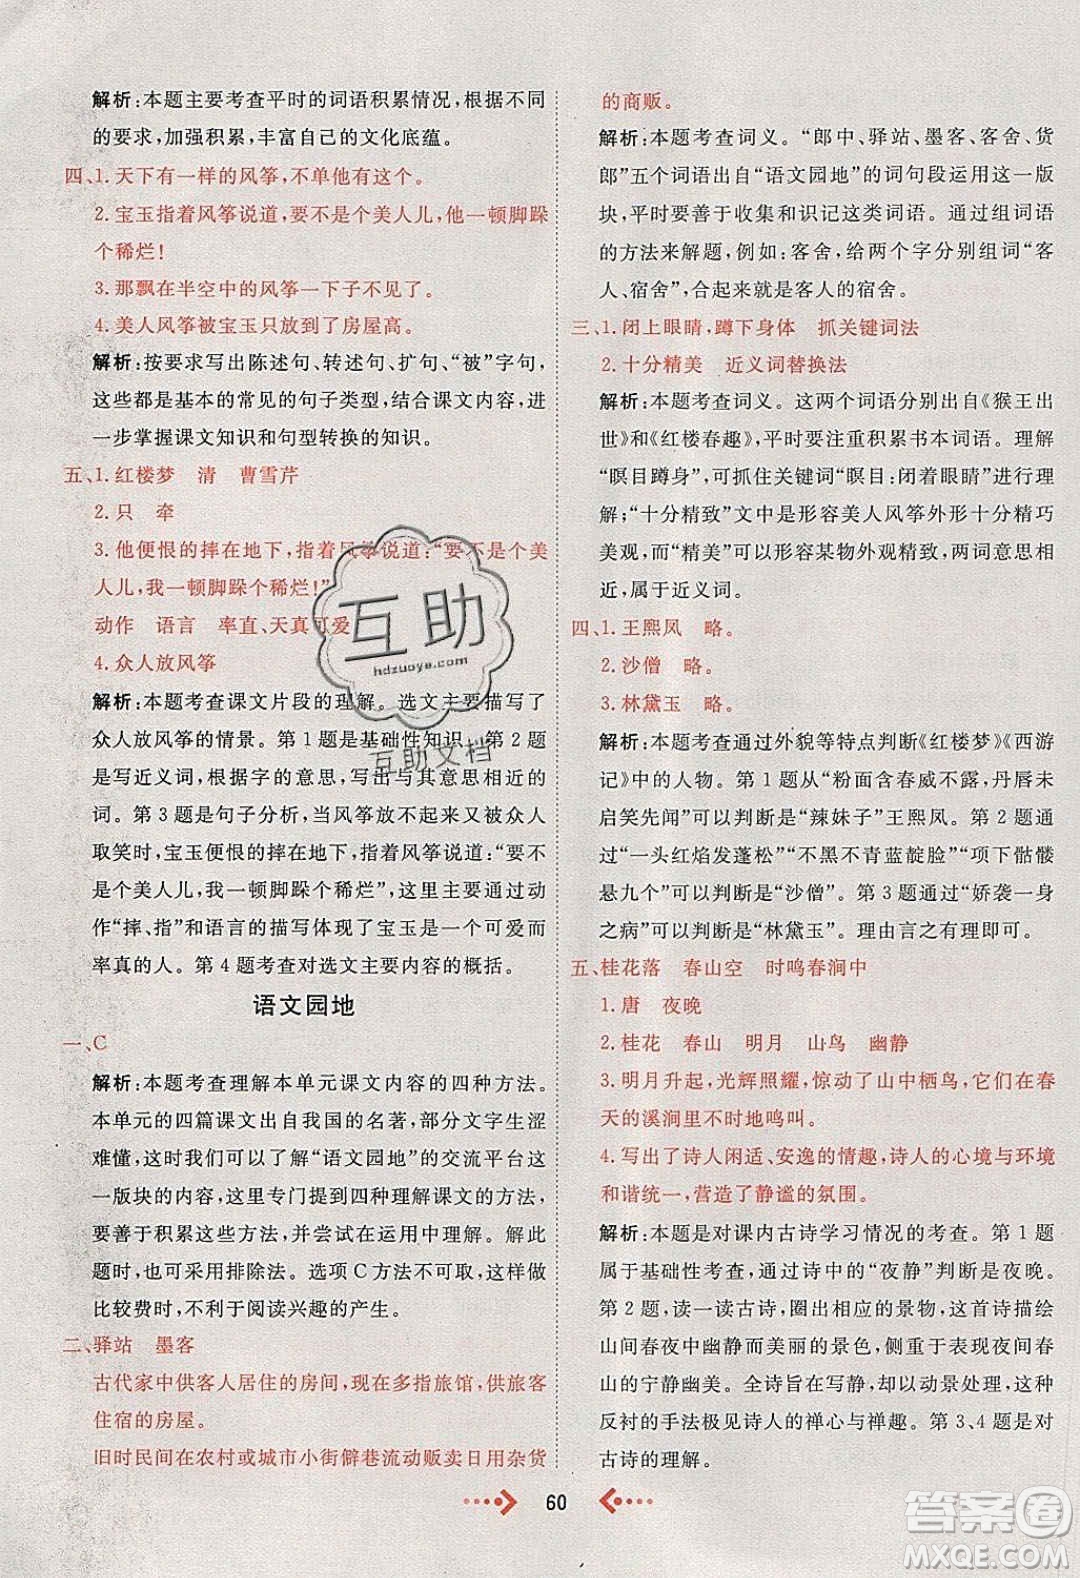 解析:本题主要考查平时的词语积累情况。根据不同
的要求,加强积累,丰富自己的文化底蕴。
四、1.天下有一样的风筝,不单他有这个。
2.宝玉指着风筝说道,要不是个美人儿,他一顿脚跺
个稀烂!
3.那飘在半空中的风筝一下子不见了。
4.美人风筝被宝玉只放到了房屋高。
解析:按要求写出陈述句、转述句、扩句、“被”字句,
这些都是基本的常见的句子类型,结合课文内容,进
一步掌握课文知识和句型转换的知识。
五、1.红楼梦 清 曹雪芹
2.只 牵
3.他便恨的摔在地下,指着风筝说道:“要不是个美
人儿,我一顿脚跺个稀烂!”
动作 语言 率直、天真可爱
4.众人放风筝
解析:本题考查课文片段的理解。选文主要描写了
众人放风筝的情景。第1题是基础性知识。第2题
是写近义词,根据字的意思,写出与其意思相近的
词。第3题是句子分析,当风筝放不起来又被众人
取笑时,宝玉便恨的摔在地下,指着风筝说道:“要不
是个美人儿,我一顿脚跺个稀烂”,这里主要通过动
作“摔、指”和语言的描写体现了宝玉是一个天真、
率真的人。第4题考查对选文主要内容的概括。
语文园地
一、C
解析:本题考查理解本单元课文内容的四种方法。
本单元的四篇课文出自我国的名著,部分文字生涩
难懂,这时我们可以了解“语文园地”的交流平台这
一版块的内容,这里专门提到四种理解课文的方法,
要善于积累这些方法,并尝试在运用中理解。做本
题时,也可采用排除法。选项C方法不可取,这样做
比较费时,不利于阅读兴趣的产生。
二、驿站 墨客
古代家中供客人居住的房间,现在多指旅馆,供旅客
住宿的房屋。
旧时民间在农村或城市小街僻巷流动贩卖日用杂货
的商贩。
解析:本题考查词义。“郎中、驿站、墨客、客舍、货
郎”五个词语出自“语文园地”的词句段运用这一版
块,平时要善于收集和识记这类词语。通过组词语
的方法来解题,例如:客舍,给两个字分别组词“客
人、宿舍”,连起来,意思就是客人的宿舍。
三、1.闭上眼睛,蹲下身体 抓关键词法
2.十分精美 近义词替换法
解析:本题考查词义。这两个词语分别出自《猴王出
世》和《红楼春趣》,平时要注重积累书本词语。理解
“瞑目蹲身”,可抓住关键词“瞑目:闭着眼睛”进行理
解;“十分精致”文中是形容美人风筝外形十分精巧
美观,而“精美”可以形容某物外观精致,两词同意,
属于近义词。
四、1.王熙凤 略。
2.沙僧 略。
3.林黛玉 略。
解析:本题考查通过外貌等特点判断《红楼梦》《西游
记》中的人物。第1题从“粉面含春威不露,丹唇未
启笑先闻”可以判断是“辣妹子”王熙凤。第2题从
“一头红焰发蓬松”“不黑不青蓝靛脸”“项下骷髅
悬九个”可以判断是“沙僧”。第3题从“娇袭一身
之病”可以判断是“林黛玉”。理由言之有理即可。
五、桂花落 春山空 时鸣春涧中
1.唐 夜晚
2.桂花 春山 明月 山鸟 幽静
3.明月升起,光辉照耀,惊动了山中栖鸟,它们在春
天的溪涧里不时地鸣叫。
4.写出了诗人闲适、安逸的情趣,诗人的心境与环境
和谐统一,营造了静谧的氛围。
解析:本题是对课内古诗学习情况的考查。第1题
属于基础性考查,通过诗中的“夜静”判断是夜晚。
第2题,读一读古诗,圈出相应的景物,这首诗描绘
山间春夜中幽静而美丽的景色,侧重于表现夜间春
山的宁静幽美。全诗旨在写静,却以动景处理,这种
反衬的手法极见诗人的禅心与禅趣。第3、4题是对
古诗的理解。
60
互助
hdzuoye.com
互助文档
答案圈
MXQE.COM